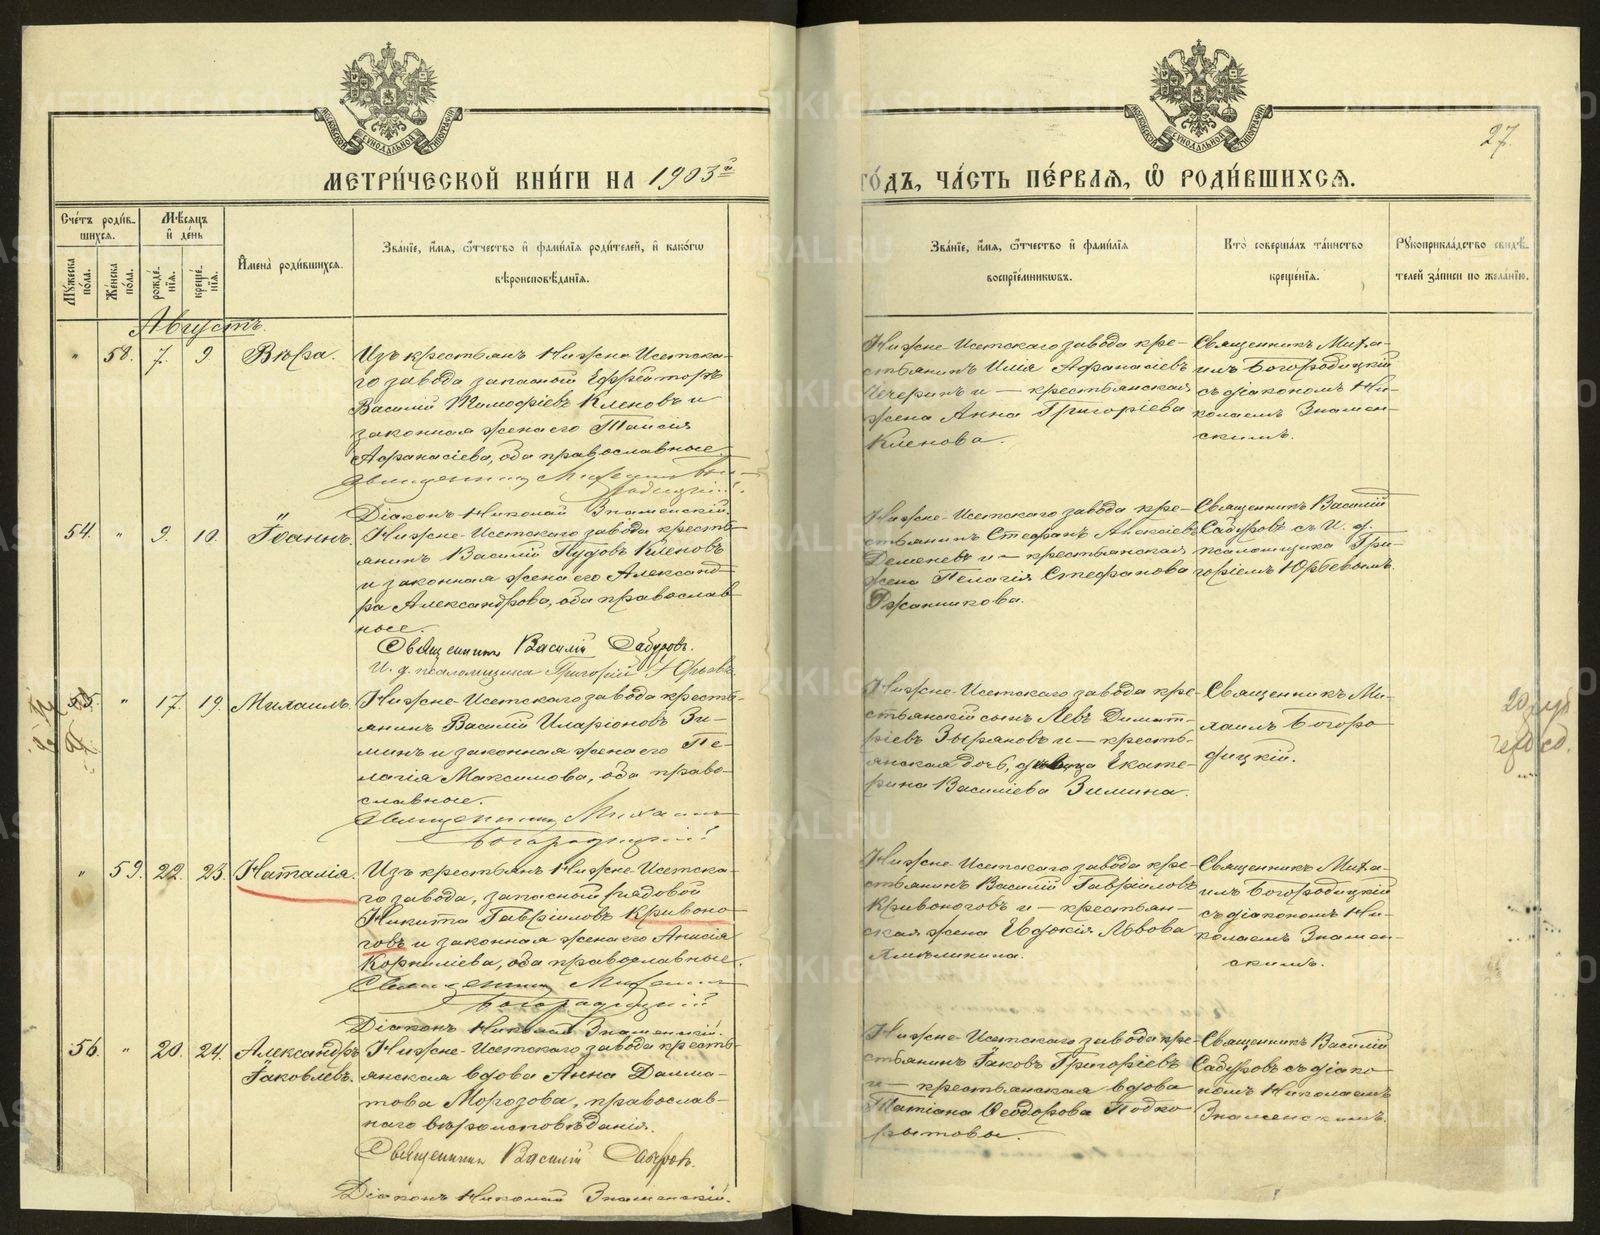 27.
МЕТРИ́ЧЕСКОЙ КНИ́ГИ НА 1903й
ГО́ДЪ, ЧА́СТЬ ПЕ́РВАЯ, Ѡ РОДИ́ВШИХСЯ.
Сче́тъ роди́в-
шихся.
Мѣ́сяцъ
и де́нь
Му́жеска по́ла.
Же́нска по́ла.
рожде́нїя.
креще́нїя.
И҆мена̀ роди́вшихся.
Зва́нїе, и҆́мя, ѻ҆́тчество и҆ фами́лїя роди́телей, и҆ како́гѡ
вѣроисповѣ́данїя.
Зва́нїе, и҆́мя, ѻ҆́тчество и҆ фами́лїя
воспрїе́мникѡвъ.
Кто̀ соверша́лъ та́инство
креще́нїя.
Рукоприкла́дство свидѣ́-
телей за́писи по жела́нїю.
Августъ.
" 58. 7. 9. Вѣра.
Изъ крестьянъ Нижне-Исетска-
го завода запасный Ефрейторъ
Василій Тимофіевъ Кленовъ и
законная жена его Таисія
Афанасіева, оба православные.
Священникъ Михаилъ Бого-
родицкій.
Діаконъ Николай Знаменскій.
Нижне-Исетскаго завода кре-
стьянинъ Илія Афанасіевъ
Чечеринъ и — крестьянская
жена Анна Григоріева
Кленова.
Священникъ Миха-
илъ Богородицкій
съ діакономъ Ни-
колаемъ Знамен-
скимъ.
54. " 9. 10. Іоаннъ.
Нижне-Исетскаго завода кресть-
янинъ Василій Пудовъ Кленовъ
и законная жена его Александ-
ра Александрова, оба православ-
ные.
Священникъ Василій Сабуровъ.
И. д. псаломщика Григорій Юрьевъ.
Нижне-Исетскаго завода кре-
стьянинъ Стефанъ
Деменевъ и — крестьянская
жена Пелагія Стефанова
Священникъ Василій
Сабуровъ съ И. д.
псаломщика Гри-
горіемъ Юрьевымъ.
55. " 17. 19. Михаилъ.
Нижне-Исетскаго завода кресть-
янинъ Василій Иларіоновъ Зи-
минъ и законная жена его Пе-
лагія Максимова, оба право-
славные.
Священникъ Михаилъ
Богородицкій
Нижне-Исетскаго завода кре-
стьянскій сынъ Левъ Димит-
ріевъ Зыряновъ и — кресть-
янская дочь, девица Екате-
рина Василіева Зимина.
Священникъ Ми-
хаилъ Богоро
дицкій.
" 59. 22. 23. Наталія.
Изъ крестьянъ Нижне-Исетска-
го завода, запасной рядовой
Никита Гавріиловъ Кривоно-
говъ и законная жена его Анисія
Корниліева, оба православные.
Священникъ Михаилъ
Богородицкій
Діаконъ Николай Знаменскій.
Нижне-Исетскаго завода кре-
стьянинъ Василій Гавріиловъ
Кривоноговъ и — крестьян-
ская жена Евдокія Львова
Хмѣлинина.
Священникъ Миха-
илъ Богородицкій
съ діакономъ Ни-
колаемъ Знамен-
скимъ.
56. " 20. 24. Александръ
Іаковлевъ.
Нижне-Исетскаго завода кресть-
янская вдова Анна Далма-
това Морозова, православ-
наго вѣроисповѣданія.
Священникъ Василій Сабуровъ.
Діаконъ Николай Знаменскій.
Нижне-Исетскаго завода кре-
стьянинъ Іаковъ Григоріевъ
и — крестьянская вдова
Татіана Ѳеодорова Подко
рытовы.
Священникъ Василій
Сабуровъ съ діако-
номъ Николаемъ
Знаменскимъ.
METRIKI.GASO-URAL.RU